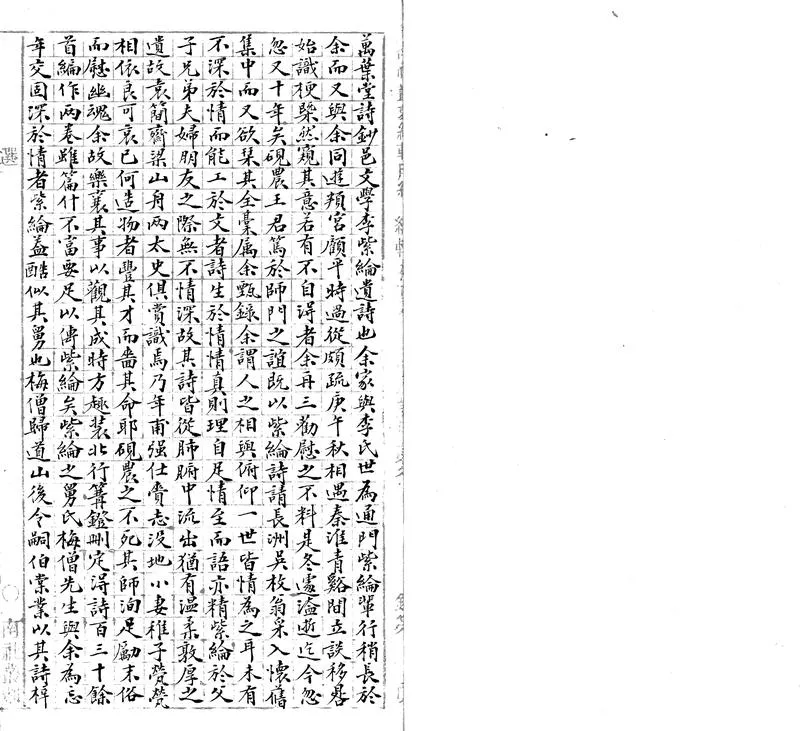 萬葉堂詩鈔邑文學李紫綸遺詩也余家與李氏世為通門紫綸輩行稍長於
余而又與余同遊頖宮顧平時過從頗疏庚午秋相遇秦淮青谿間立談移晷
始識梗槩然窺其意若有不自得者余再三勸慰之不料是冬遽溘逝迄今忽
忽又十年矣硯農王君篤於師門之誼既以紫綸詩請長洲吳枚翁采入懷舊
集中而又欲琹其全稾属余甄錄余謂人之相與俯仰一世皆情為之耳未有
不深於情而能工於文者詩生於情情真則理自足情至而語亦精紫綸於父
子兄弟夫婦朋友之際無不情深故其詩皆從肺腑中流出猶有温柔敦厚之
遺故袁簡齋梁山舟兩太史俱賞識焉乃年甫强仕賫志没地小妻稚子煢煢
相依良可哀已何造物者豐其才而嗇其命耶硯農之不死其師洵足勵末俗
而慰幽魂余故樂襄其事以觀其成時方趣装北行篝鐙刪定得詩百三十餘
首編作两卷雖篇什不富要足以傳紫綸矣紫綸之舅氏梅僧先生與余為忘
年交固深於情者紫綸葢酷似其舅也梅僧歸道山後令嗣伯棠業以其詩梓
選